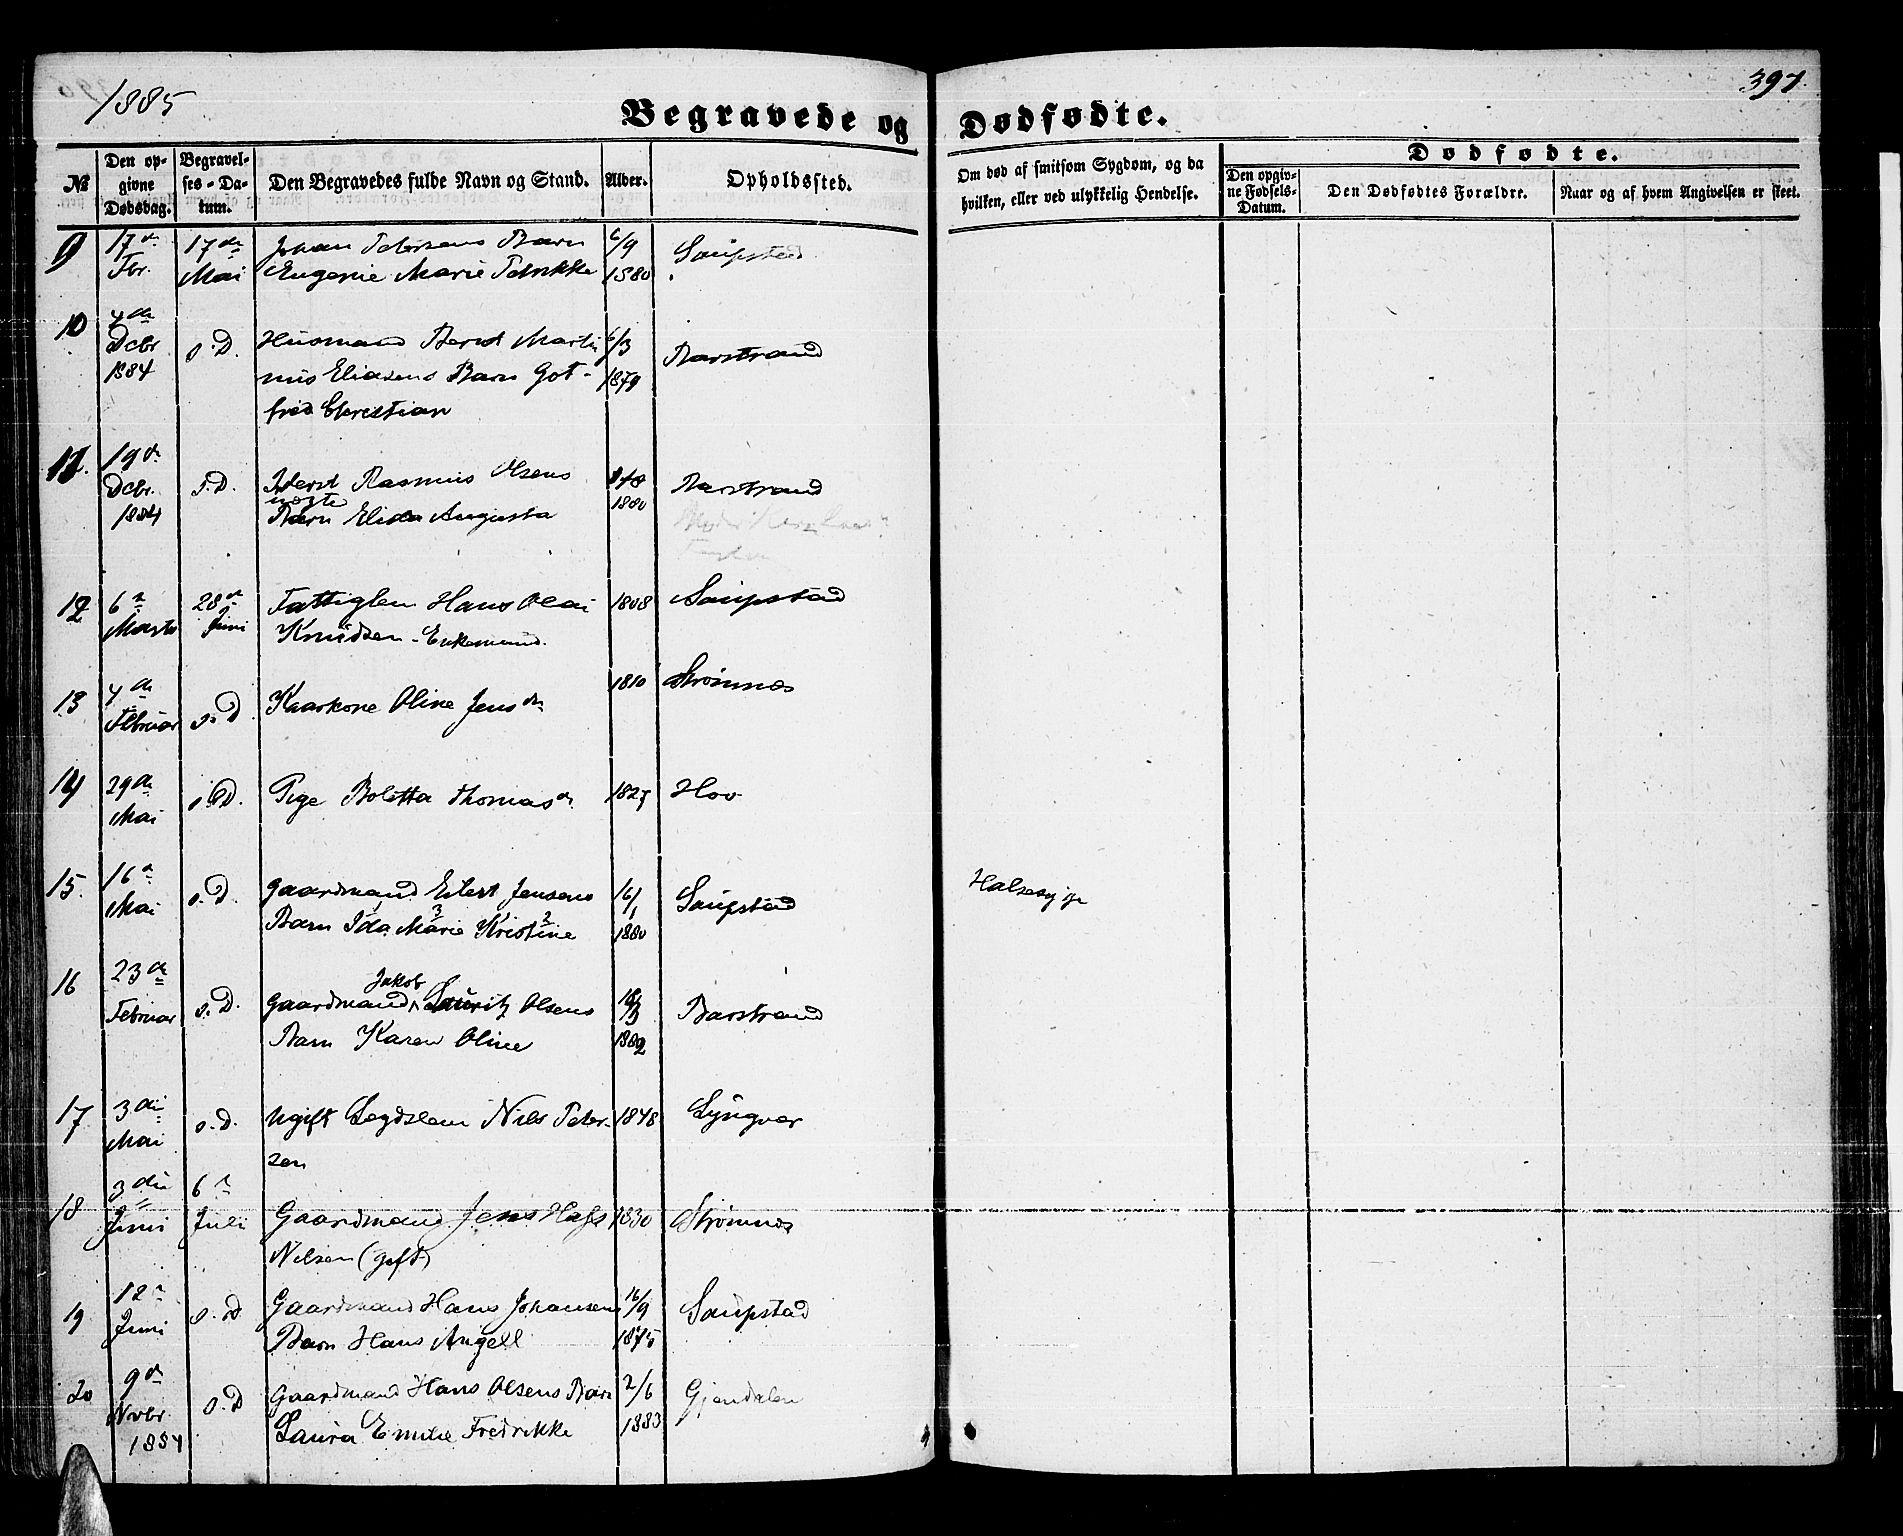 1885
397.
Begravede og Dødfødte.
№ Den opgivne Dødsdag. Begravelses-Datum. Den Begravedes fulde Navn og Stand. Alder. Opholdssted. Om død af smitsom Sygdom, og da hvilken, eller ved ulykkelig Hendelse. Dødfødte. Den opgivne Fødsels-Datum. Den Dødfødtes Forældre. Naar og af hvem Angivelsen er skeet.
9 17de 17de Johan Petersens Barn 6/9 Saupstad
Fbr. Mai Eugenie Marie Petrikke 1880
10 4de
Dcbr s.D. Husmand Bernt Marti 6/3 Barstrand
1884 nus Eliasens Barn Got- 1879
fred Christian
11. 19de
Dcbr. s.D. Rasmus Olsens Barstrand
1884 uægte Barn Elida Augusta 1880
12 6te 28de Fattiglem Hans Olai 1808 Saupstad
Marts Juni Knudsen - Enkemand.
13 4de 1810 Strømnes
Februar s.D Kaarkone Oline Jensdr
14 29de s.D. Pige Boletta Thomasdr 1827 Hov
Mai
15. 16de s.D. Gaardmand Eilert Jensens 16/1 Saupstad Halsesyge
Mai Barn Ida Marie 3 Kristine 2 1880
16 23de Jakob
Februar s.D. Gaardmand Lauritz Olsens Barstrand
Barn Karen Oline 1882
17 3die s.D. Ugift Legdslem Nils Peter- 1848 Lyngvær
Mai sen
18 3die 6te
Juni Juli Gaardmand Jens Hass 1830 Strømnes
Nilsen (gift)
19 12te s.D Gaardmand Hans Johansens 16/9 Saupstad
Juni Barn Hans Angell 1875
20 9de s.D Gaardmand Hans Olsens Barn 2/6 Gjendalen
Nvbr. Laura Emilie Fredrikke 1883
1884